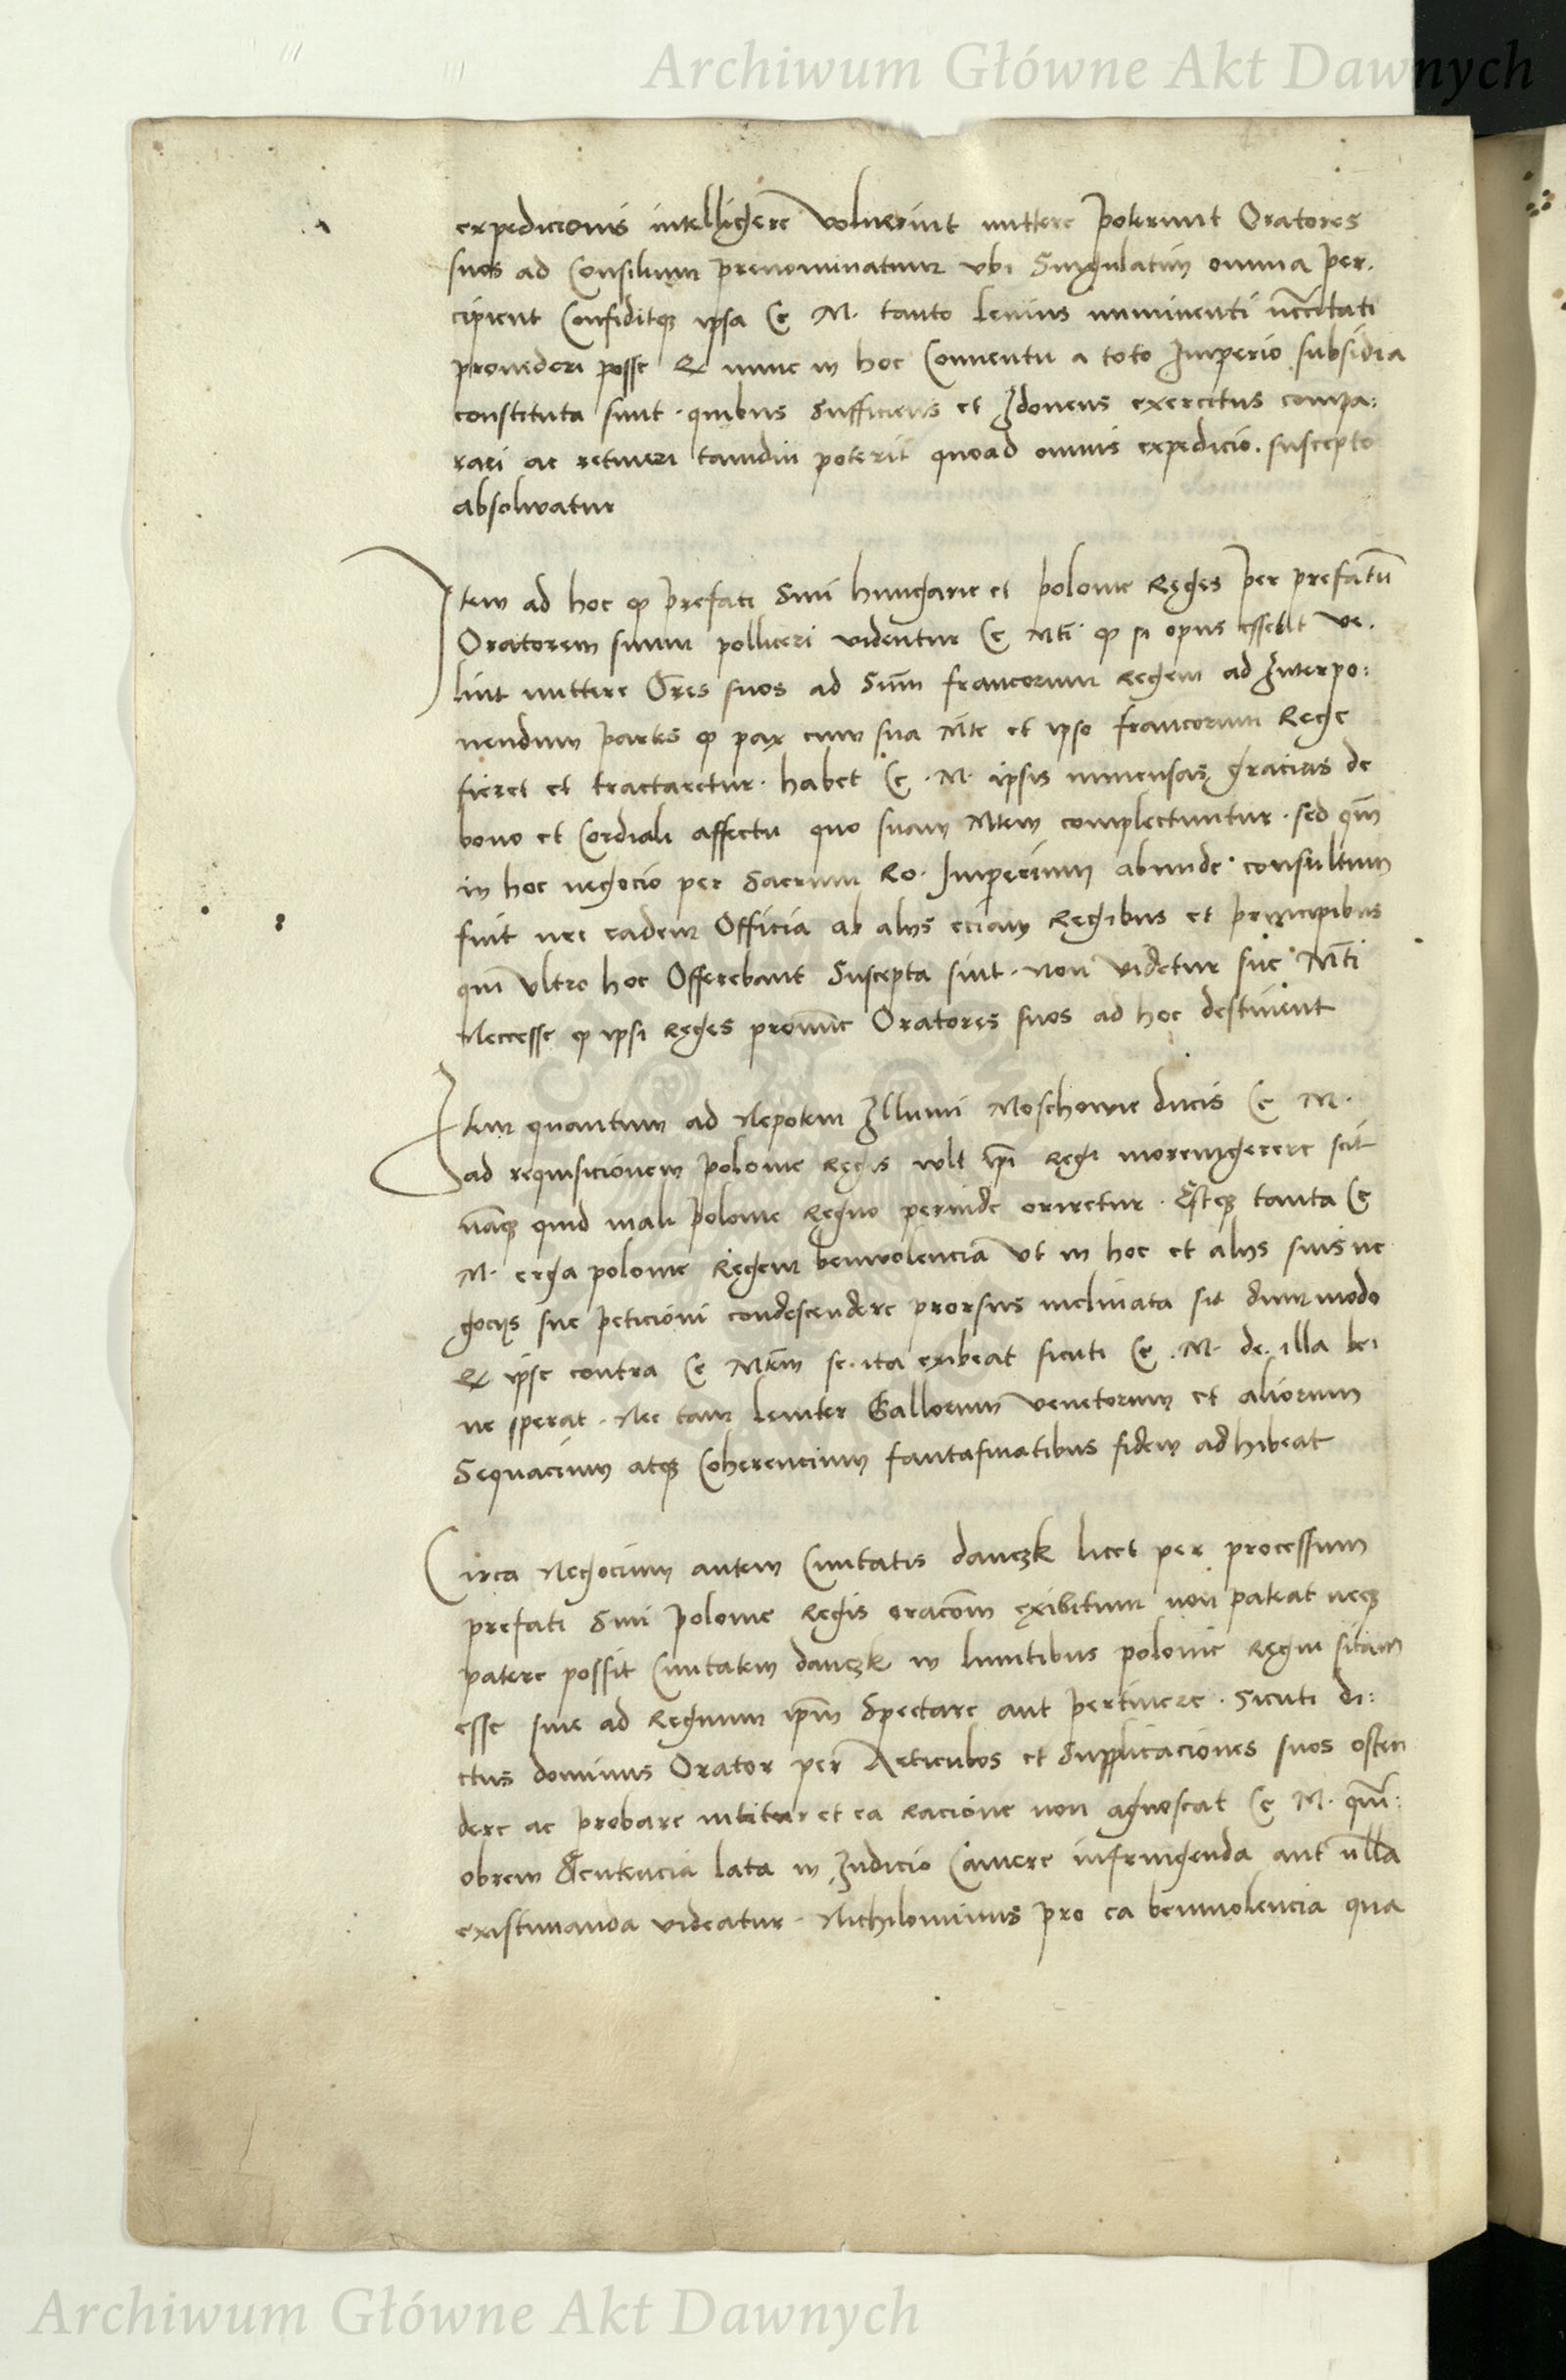 Archiwum Główne Akt Dawnych
expedicionis intelligere voluerint mittere poterunt Oratores
suos ad Consilium prenominatum vbi Singulatim omnia per.
cipient Confiditq ipsa Ce M. tanto leuius imminenti necitati
prouederi posse & nunc in hoc Conuentu a toto Imperio subsidia
constituta sunt. quibus Sufficiens et Idoneus exercitus compa:
rari ac retineri tamdiu poterit quoad omnis expedicio. suscepto
absoluatur
Item ad hoc q prefati Smi hungarie et polonie Reges per prefatu
Oratorem suum polliceri videntur Ce Mti q si opus esset ve.
lint mittere Ores suos ad Sum francorum Regem ad Interpo:
nendum partes q pax cum sua Mte et ipso francorum Rege
fieret et tractaretur. habet Ce. M. ipsis immensas gracias de
bono et Cordiali affectu quo suam Mtem complectuntur. sed qm
in hoc negocio per Sacrum Ro. Imperium abunde consultum
fuit nec eadem Officia ab alys eciam Regibus et principibus
qui vltro hoc Offerebant Suscepta sint. non videtur sue Mti
Neccesse q ipsi Reges pronunc Oratores suos ad hoc destinent
Item quantum ad Nepotem Illumi Moschouie ducis Ce M.
ad requisicionem polonie Regis vult ipi Regi moremgerere scit
naq quid mali polonie Regno perinde oriretur. Estq tanta Ce
M. erga polonie Regem beniuolencia vt in hoc et alys suis ne
gocys sue peticioni condescendere prorsus inclinata sit dummodo
& ipse contra Ce Mtem se. ita exibeat sicuti Ce. M. de. illa be:
ne sperat. Nec tam leuiter Gallorum venetorum et aliorum
Sequacium atq Coherencium fantasmatibus fidem adhibeat
Circa Negocium autem Ciuitatis danczk licet per processum
prefati Smi polonie Regis oracom exibitum non pateat neq
patere possit Ciuitatem danczk in limitibus polonie Regni sitam
esse siue ad Regnum ipm Spectare aut pertinere. Sicuti di:
ctus dominus Orator per Articulos et Supplicaciones suos osten
dere ac probare nititur et ea racione non agnoscat Ce M. qm:
obrem Sentencia lata in Iudicio Camere infringenda aut nulla
existimanda videatur. Nichilominus pro ea beniuolencia qua
Archiwum Główne Akt Dawnych